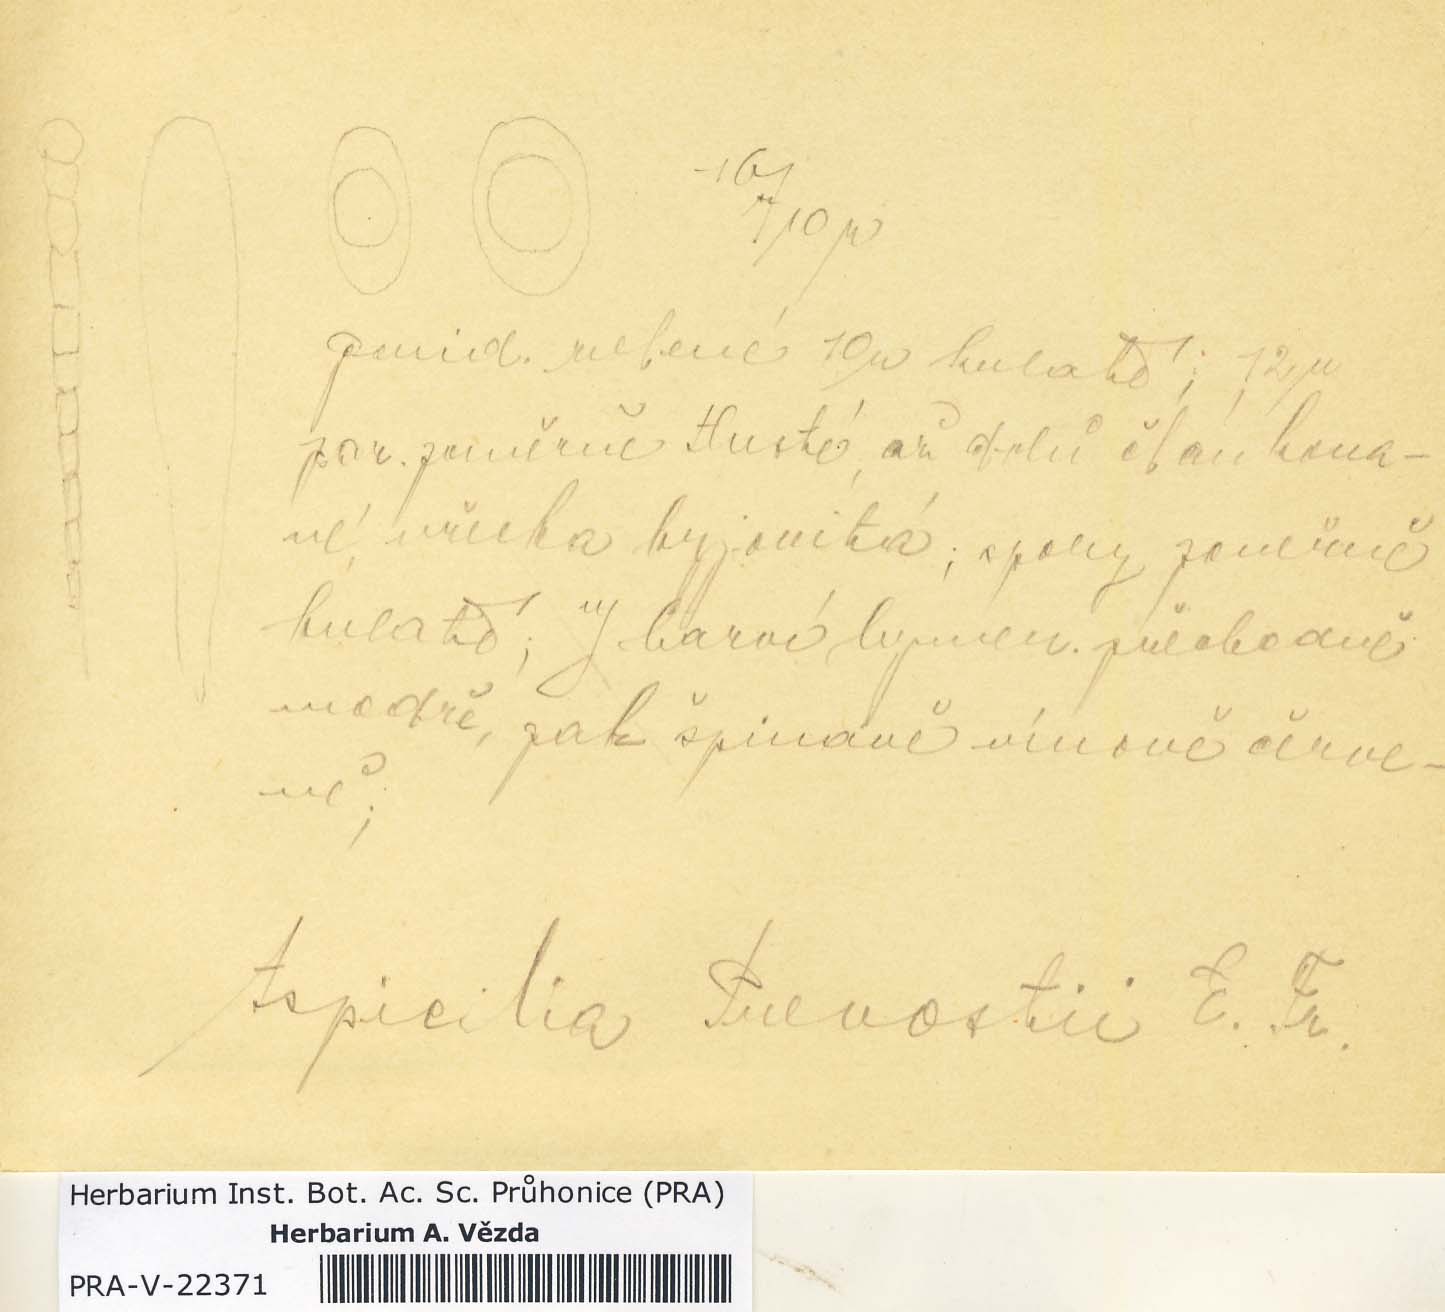 16/
7/10 µ
gonid. zelené 10µ kulaté; 12µ
par. poměrně tlusté, až dolů článkova-
né, vřecka kyjovitá; spory poměrně
kulaté; J barví hymen. přechodně
modře, pak špinavě vínově červe-
ně;
Aspicilia Prevostii E. Fr.
Herbarium Inst. Bot. Ac. Sc. Průhonice (PRA)
Herbarium A. Vězda
PRA-V-22371